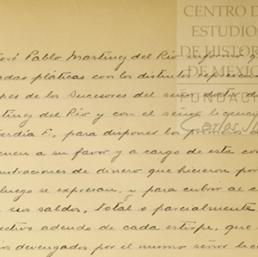 CENTRO DE
ESTUDIOS
DE HISTORIA
DE MÉXICO
FUNDACIÓN
Carlos Slim
José Pablo Martínez del Río
adas pláticas con los distintos
pes de los sucesores del señor don
tínez del Río y con el señor licenciado
erdía F. para disponer los
cuen a su favor y a cargo de esta
ministraciones de dinero que hicieron por
luego se expresan, y para cubrir al
sus saldos, total o parcialmente
ectivo adeudo de cada estirpe, que
os devengados por el mismo señor